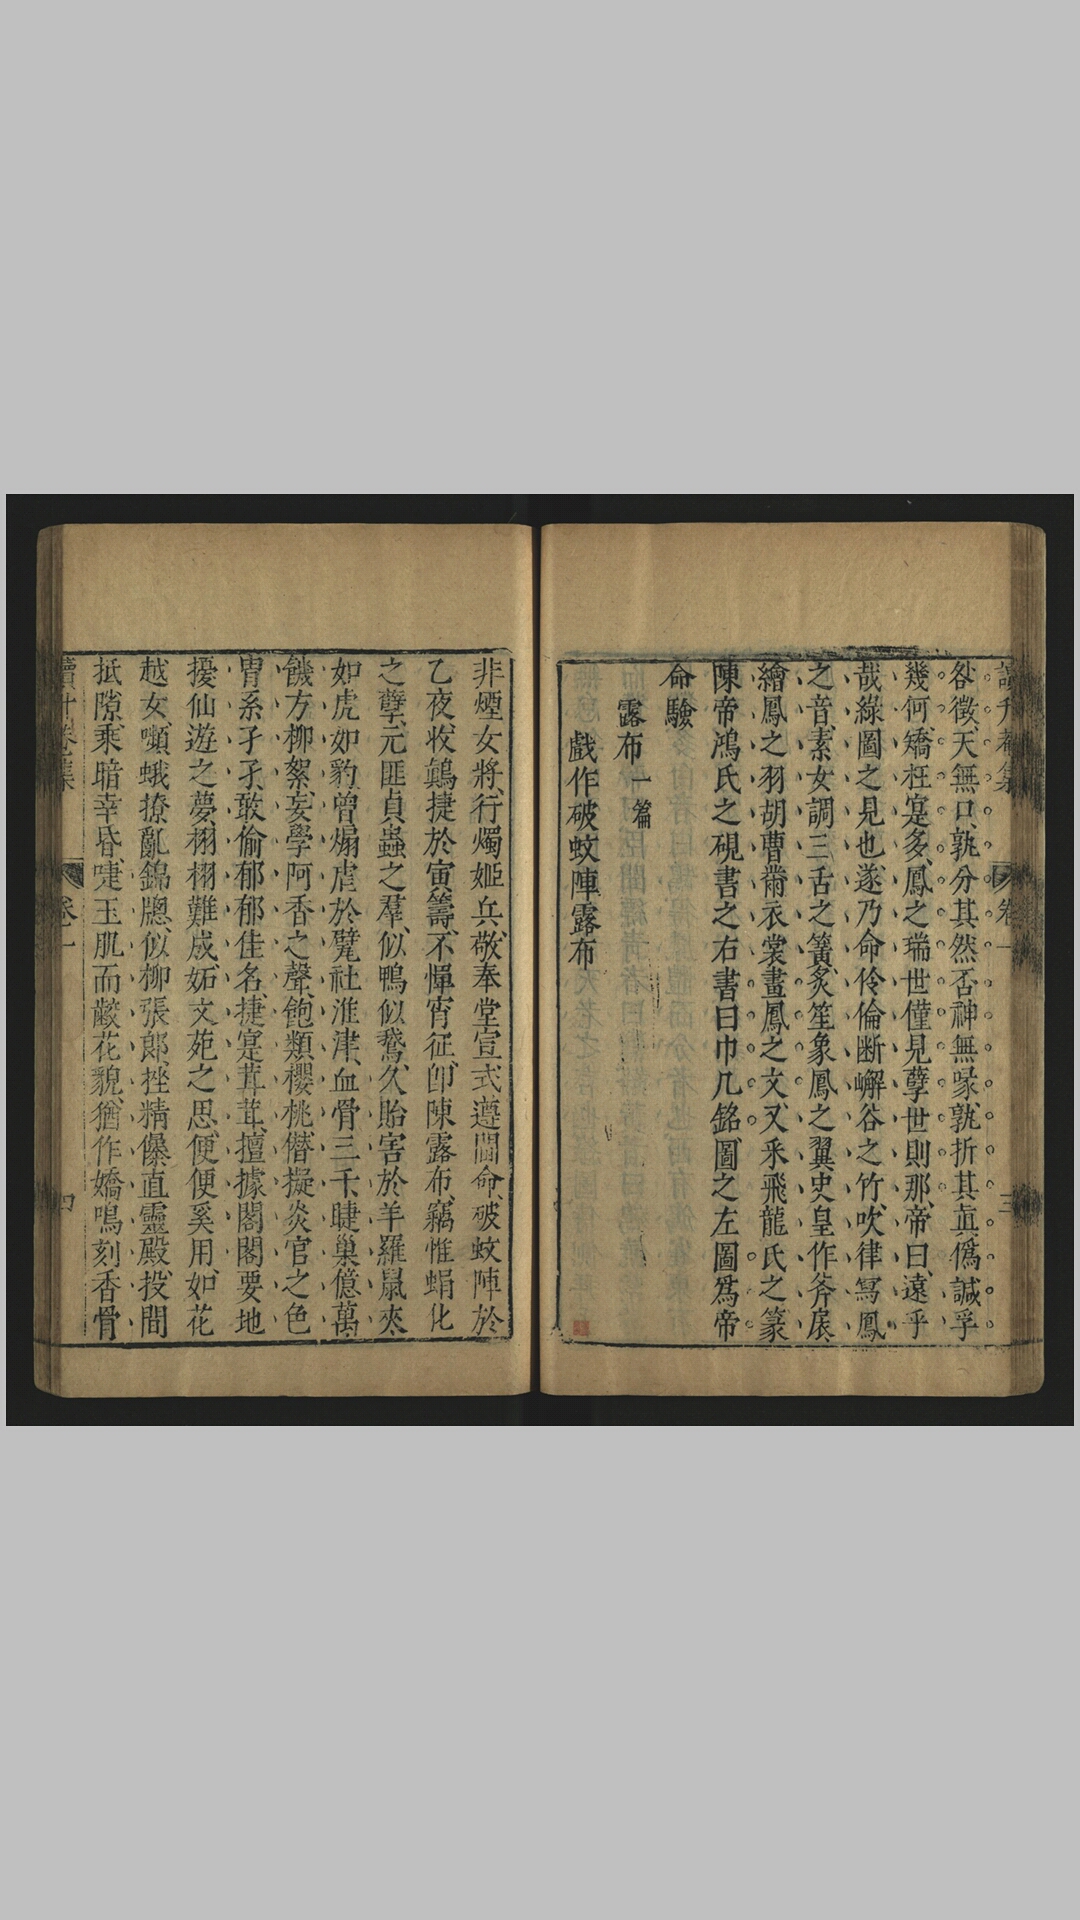 咎徵、天無口、孰分其然否、神無喙、孰折其眞僞、諴孚
幾何、矯枉寔多、鳳之瑞世僅見、孽世則那、帝曰、遠乎
哉、綠圖之見也、遂乃命伶倫斷嶰谷之竹、吹律寫鳳
之音、素女調三舌之簧、炙笙象鳳之翼、史皇作斧扆
繪鳳之羽、胡曹黹衣裳畫鳳之文、又釆飛龍氏之篆
陳帝鴻氏之硯、書之右、書曰巾几銘、圖之左、圖爲帝
命驗
露布一篇
戲作破蚊陣露布
非煙女將、行燭姬兵、敬奉堂宣、式遵閫命、破蚊陣於
乙夜、收鷫捷於寅籌、不憚宵征、卽陳露布、竊惟蜎化
之孽、元匪貞蟲之羣、似鴨似鵞、久貽害於羊羅鼠夾
如虎如豹、曾煽虐於甓社淮津、血骨三千、睫巢億萬
饑方柳絮、妄學阿香之聲、飽類櫻桃、僭擬炎官之色
冑系孑孑、敢偷郁郁佳名、捷寔茸茸、擅據閣閣要地
擾仙遊之夢、栩栩難成、妬文苑之思、便便奚用、如花
越女、嚬蛾撩亂錦䆫、似柳張郎、挫精儤直靈殿、投間
抵隙、乘暗幸昏、啑玉肌而齾花貌、猶作嬌鳴、刻香骨
卷一
三
卷一
四